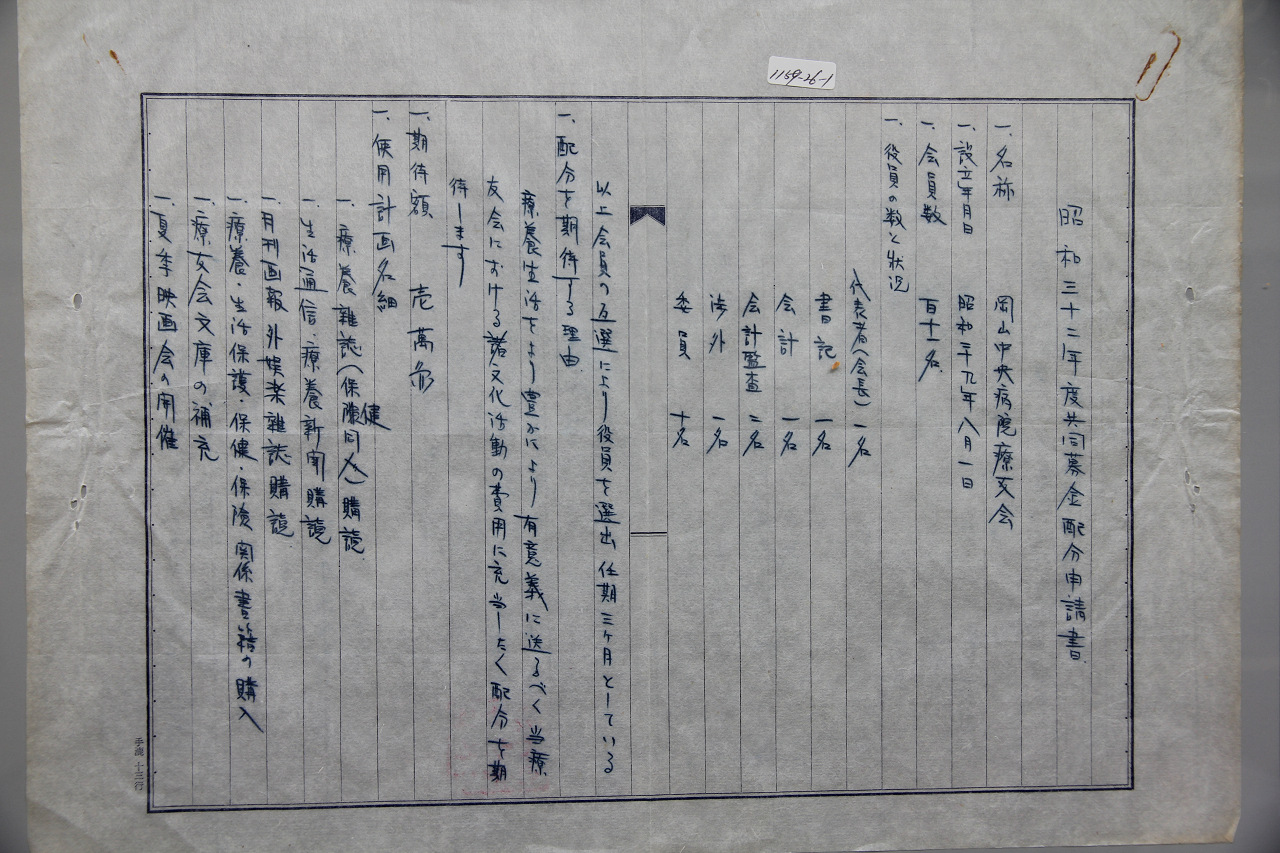 1159-26-1
昭和三十二年度共同募金配分申請書
一、名称 岡山中央病院療友会
一、設立年月日 昭和二十九年八月一日
一、会員数 百十一名
一、役員の数と状況
代表者(会長) 一名
書記 一名
会計 一名
会計監査 二名
渉外 一名
委員 十名
以上会員の互選により役員を選出 任期三ヶ月としている
一、配分を期待する理由
療養生活をより豊かにより有意義に送るべく当療
友会における諸文化活動の費用に充当したく配分を期
待します
一、期待額 壱萬
一、使用計画名細
一、療養雑誌(保健同人)購読
一、生活通信・療養新聞購読
一、月刊画報外娯楽雑誌購読
一、療養・生活保護・保健・保険関係書籍の購入
一、療友会文庫の補充
一、夏季映画会の開催
手漉 十三行